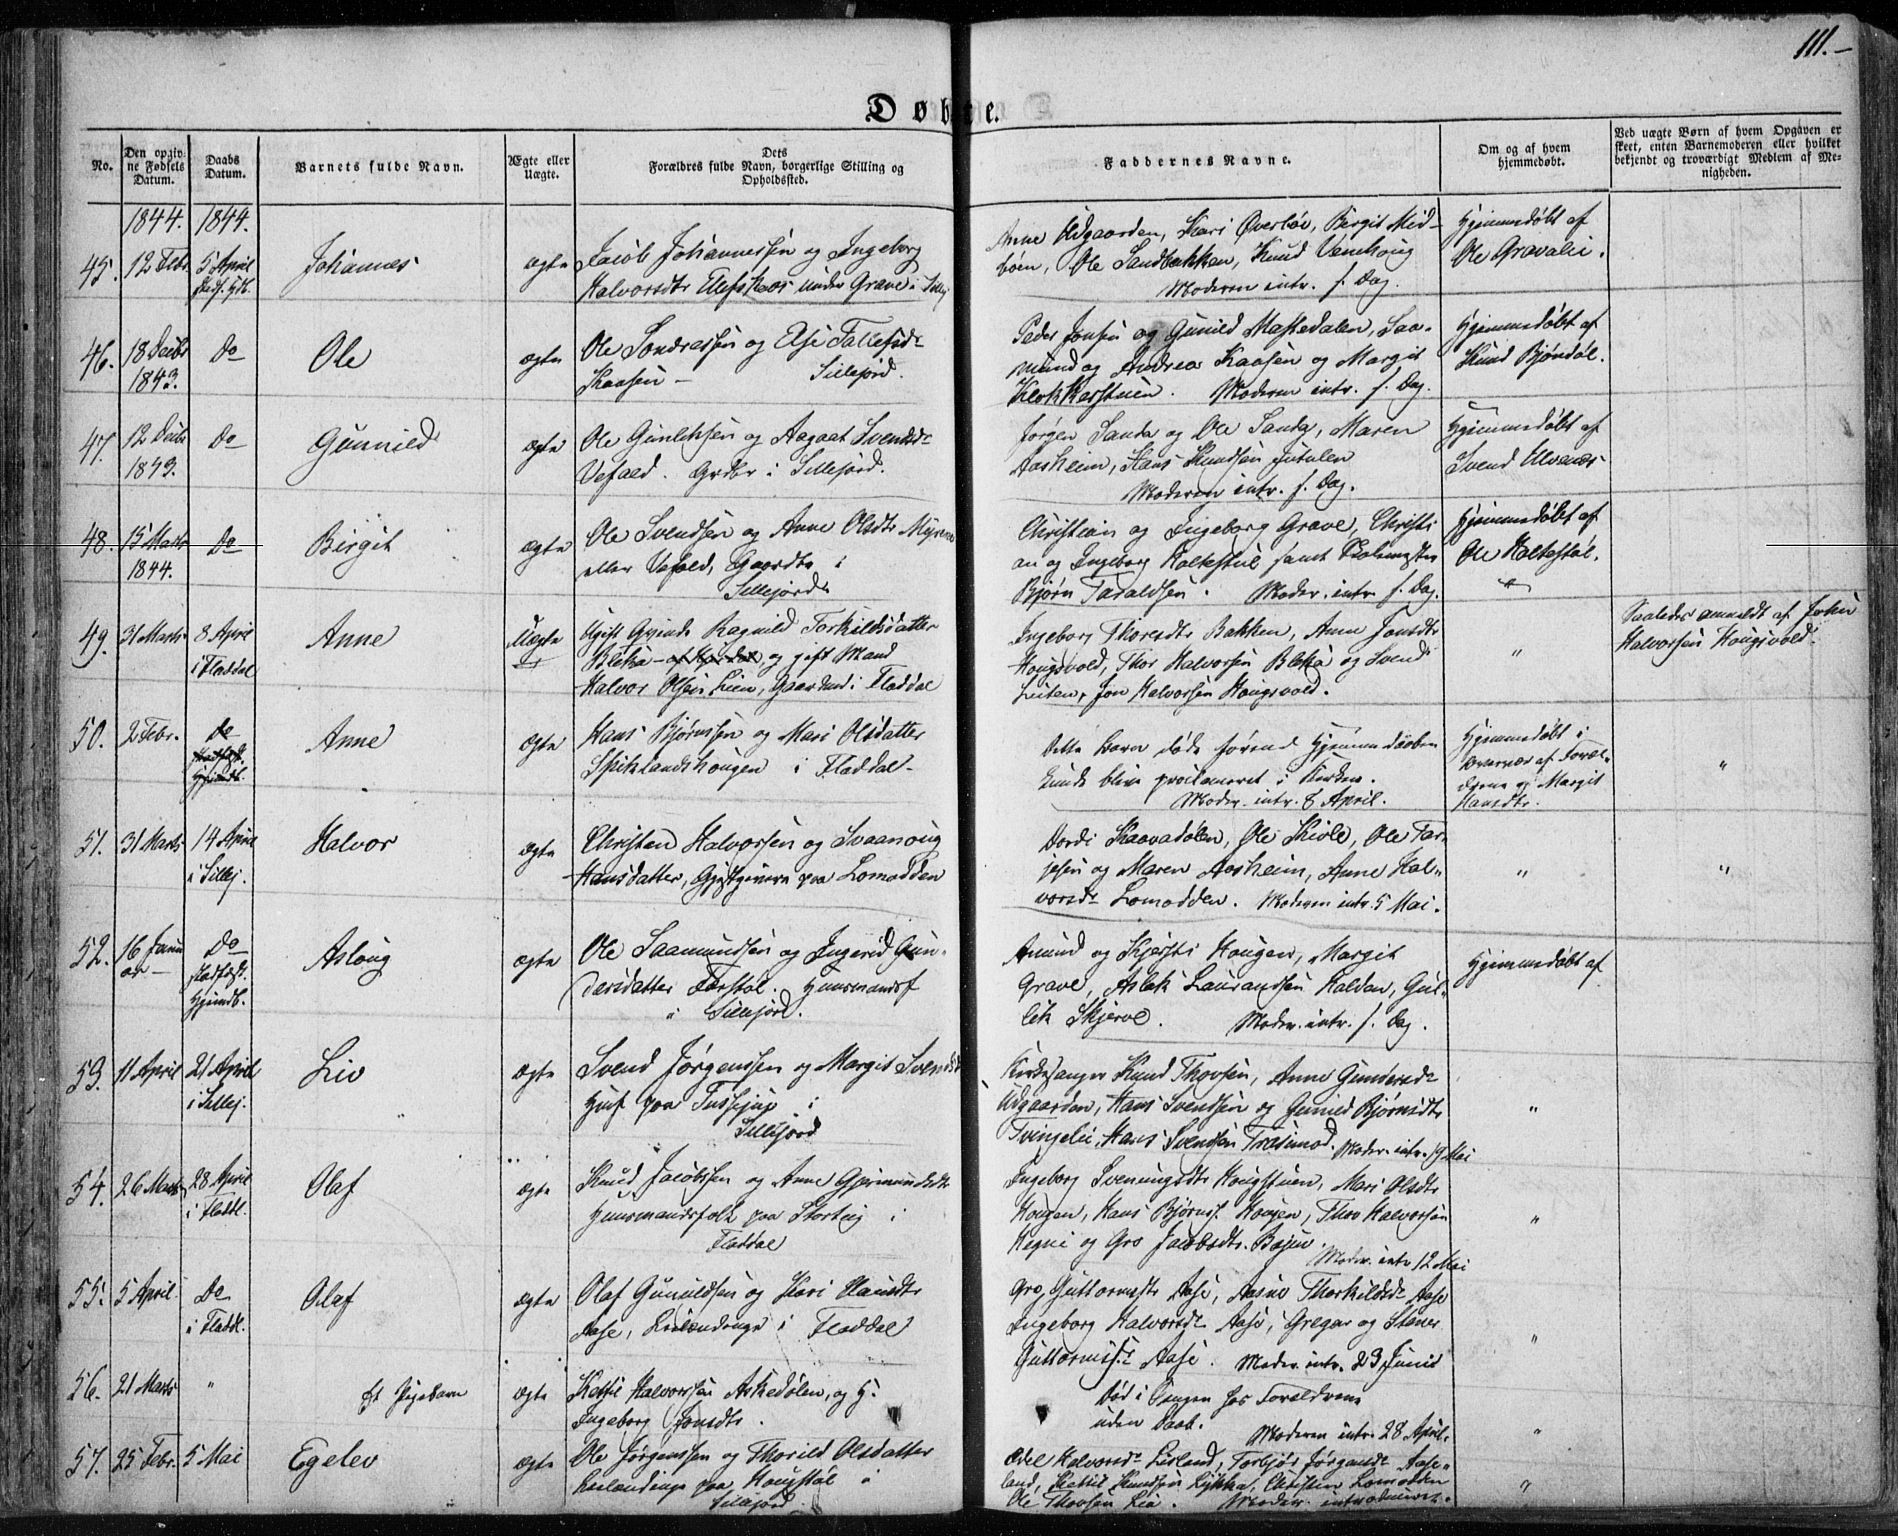 111.
Døbte.
No.
Den opgivne Fødsels Datum.
Daabs Datum.
Barnets fulde Navn.
Ægte eller Uægte.
Dets Forældres fulde Navn, borgerlige Stilling og Opholdssted.
Faddernes Navne.
Om og af hvem hjemmedøbt.
Ved uægte Børn af hvem Opgaven er skeet, enten Barnemoderen eller hvilket bekjendt og troværdigt Medlem af Menigheden.
1844. 1844.
45. 12 Febr. 5 April Johannes ægte Jacob Johannessen og Ingeborg
Halvorsdtr under Grave i Sillej
Anne Udgaarden, Kari Øverbøe, Birgit Mid-
bøen, Ole Sandbakken, Knud
Moderen intr. s. Dag.
Hjemmedøbt af
Ole Gravalie.
46. 18 Decbr 1843. Do Ole ægte Ole Sondresen og Else Tallefsdr
Kaasen - Sillejord.
Peder Jonsen og Gunild Mastedalen, Saa-
mund og Andrea Kaasen og Margit
Klokkerstuen. Moderen intr. s. Dag.
Hjemmedøbt af
Knud Bjøndal.
47. 12 Decbr 1843. Do Gunnild ægte Ole Gunleksen og Aagaat Svendsdr
Vefald. Grdbr i Sillejord.
Jørgen Sanda og Ole Sanda, Maren
Aasheim, Hans Knudsen Jutulen
Moderen intr. s. Dag.
Hjemmedøbt af
Svend Ulvenes
48. 15 Marts 1844. Do Birgit ægte Ole Svendsen og Anne Olsdtr Myrene
eller Vefald, Gaardbr i
Sillejord
Christian og Ingeborg Grave, Christi
an og Ingeborg Holtestul samt Skolemester
Bjørn Taraldsen. Moder. intr. s. Dag.
Hjemmedøbt af
Ole Holtestøl.
"
49. 31 Marts 8 April i Fladdal Anne Uægte Ugift Qvinde Ragnild Torkildsdatter
Bleka og gift Mand
Halvor Olsen Lien, Gaardmd i Fladdal
Ingeborg Thorsdtr Bakken, Anne Jonsdtr
Hougsvold, Thor Halvorsen Bleka og Svend
Leiten, Jon Halvorsen Hougsvold.
"
Saaledes anmeldt af John
Halvorsen Hougsvold.
50. 2 Febr. Do Anne ægte Hans Bjørnsen og Mari Olsdatter
Spiklandshougen i Fladdal
Dette Barn døde førend Hjemmedaaben
kunde blive proclameret i Kirken.
Moder. intr. 8 April.
Hjemmedøbt i
Overvær af Foræl-
drene og Margit
Hansdtr.
"
51. 31 Marts 14 April i Sillej. Halvor ægte Christen Halvorsen og Svaanoug
Hansdatter, Gjestgivere paa Lomodden
Dordi Kaavadølen, Ole Kivle, Ole Tar-
jesen og Maren Aasheim, Anne Hal-
vorsdr Lomodden. Moderen intr. 5 Mai.
" "
52. 16 Janu ar - Do stadfæst. Hjemdb. Aslaug ægte Ole Saamundsen og Ingerid Gun-
darsdatter Førstøl. Huusmandsf
i Sillejord.
Amund og Kjersti Hougen, Margit
Grave, Aslak Laurandsen Haldan, Gul-
lik Skjerve. Moder. intr. s. Dag.
Hjemmedøbt af
53. 11 April 21 April i Sillej. Liv ægte Svend Jørgensen og Margit Svendsd
Husf paa i
Sillejord
Kirkesanger Knud Thovsen, Anne Gundersdr
Udgaarden, Hans Svendsen og Gunild Bjørnsdtr
Tvingelie, Hans Svendsen Moder. intr. 19 Mai
"
54. 26 Marts 28 April i Fladdl. Olaf ægte Knud Jacobsen og Anne Gjermundsdtr
Huusmandsfolk paa Storteig i
Fladdal
Ingeborg Sveinungsdtr Hougstuen, Mari Olsdtr
Hougen, Hans Bjørns. Hougen, Thov Halvorsen
Hegni og Gro Jacobsdtr. Bøjen.
Moder. intr 12 Mai
"
55. 5 April Do i Fladdl. Olaf ægte Olaf Gunuldsen og Kari Hansdtr
Aase, Leilændinge i Fladdal
Gro Guttormsdtr Aase, Aasne Thorkildsdr Aase
Ingeborg Halvorsdr Aase, Gregar og Stener
Guttorms. Aase. Moder. intr. 23 Junii
"
56. 21 Marts " Et Pigebarn ægte Kettil Halvorsen Askedølen, og H.
Ingeborg Jonsdtr.
Død i Sengen hos Forældrene
uden Daab.
Moderen intr. 28 April.
"
57. 25 Febr. 5 Mai Egelev ægte Ole Jørgensen og Thorild Olsdatter
Leilændinge paa Hougstøl i
Sillejord
Ædel Halvorsdr Lisland, Torbjør Jørgensdr Aase-
land, Kettil Knudsen Lykka, Christen Lomodden
Ole Thovsen Lia. Moder. introduceret.
"